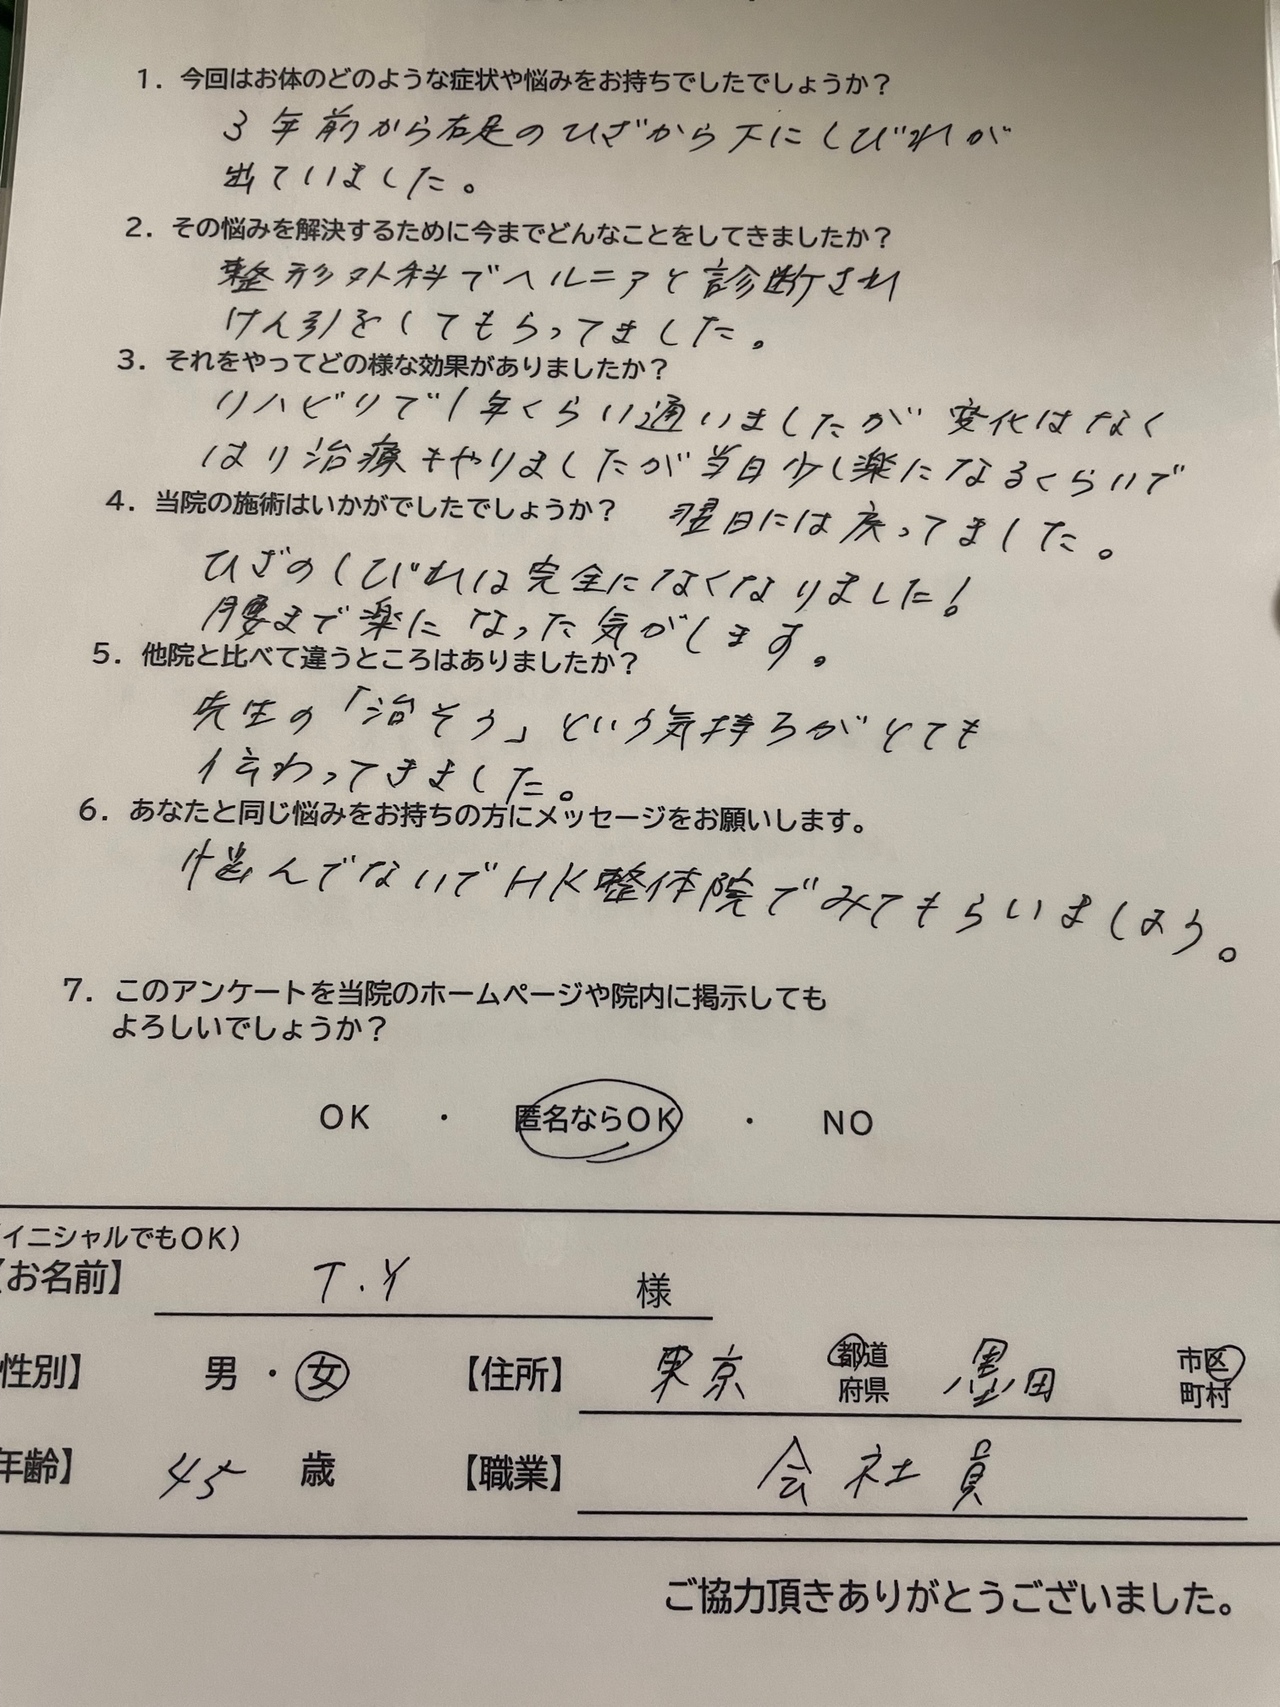 1．今回はお体のどのような症状や悩みをお持ちでしたでしょうか？
3年前から右足のひざから下にしびれが
出ていました。
2．その悩みを解決するために今までどんなことをしてきましたか？
整形外科でヘルニアと診断され
けん引をしてもらってました。
3．それをやってどの様な効果がありましたか？
リハビリで1年くらい通いましたが変化はなく
はり治療もやりましたが当日少し楽になるくらいで
翌日には戻ってました。
4．当院の施術はいかがでしたでしょうか？
ひざのしびれは完全になくなりました！
腰まで楽になった気がします。
5．他院と比べて違うところはありましたか？
先生の「治そう」という気持ちがとても
伝わってきました。
6．あなたと同じ悩みをお持ちの方にメッセージをお願いします。
悩んでないでHK整体院でみてもらいましょう。
7．このアンケートを当院のホームページや院内に掲示しても
よろしいでしょうか？
OK ・ 匿名ならOK ・ NO
イニシャルでもOK）
【お名前】 T.Y 様
性別】 男・女 【住所】 東京 都道府県 墨田 市区町村
年齢】 45 歳 【職業】 会社員
ご協力頂きありがとうございました。